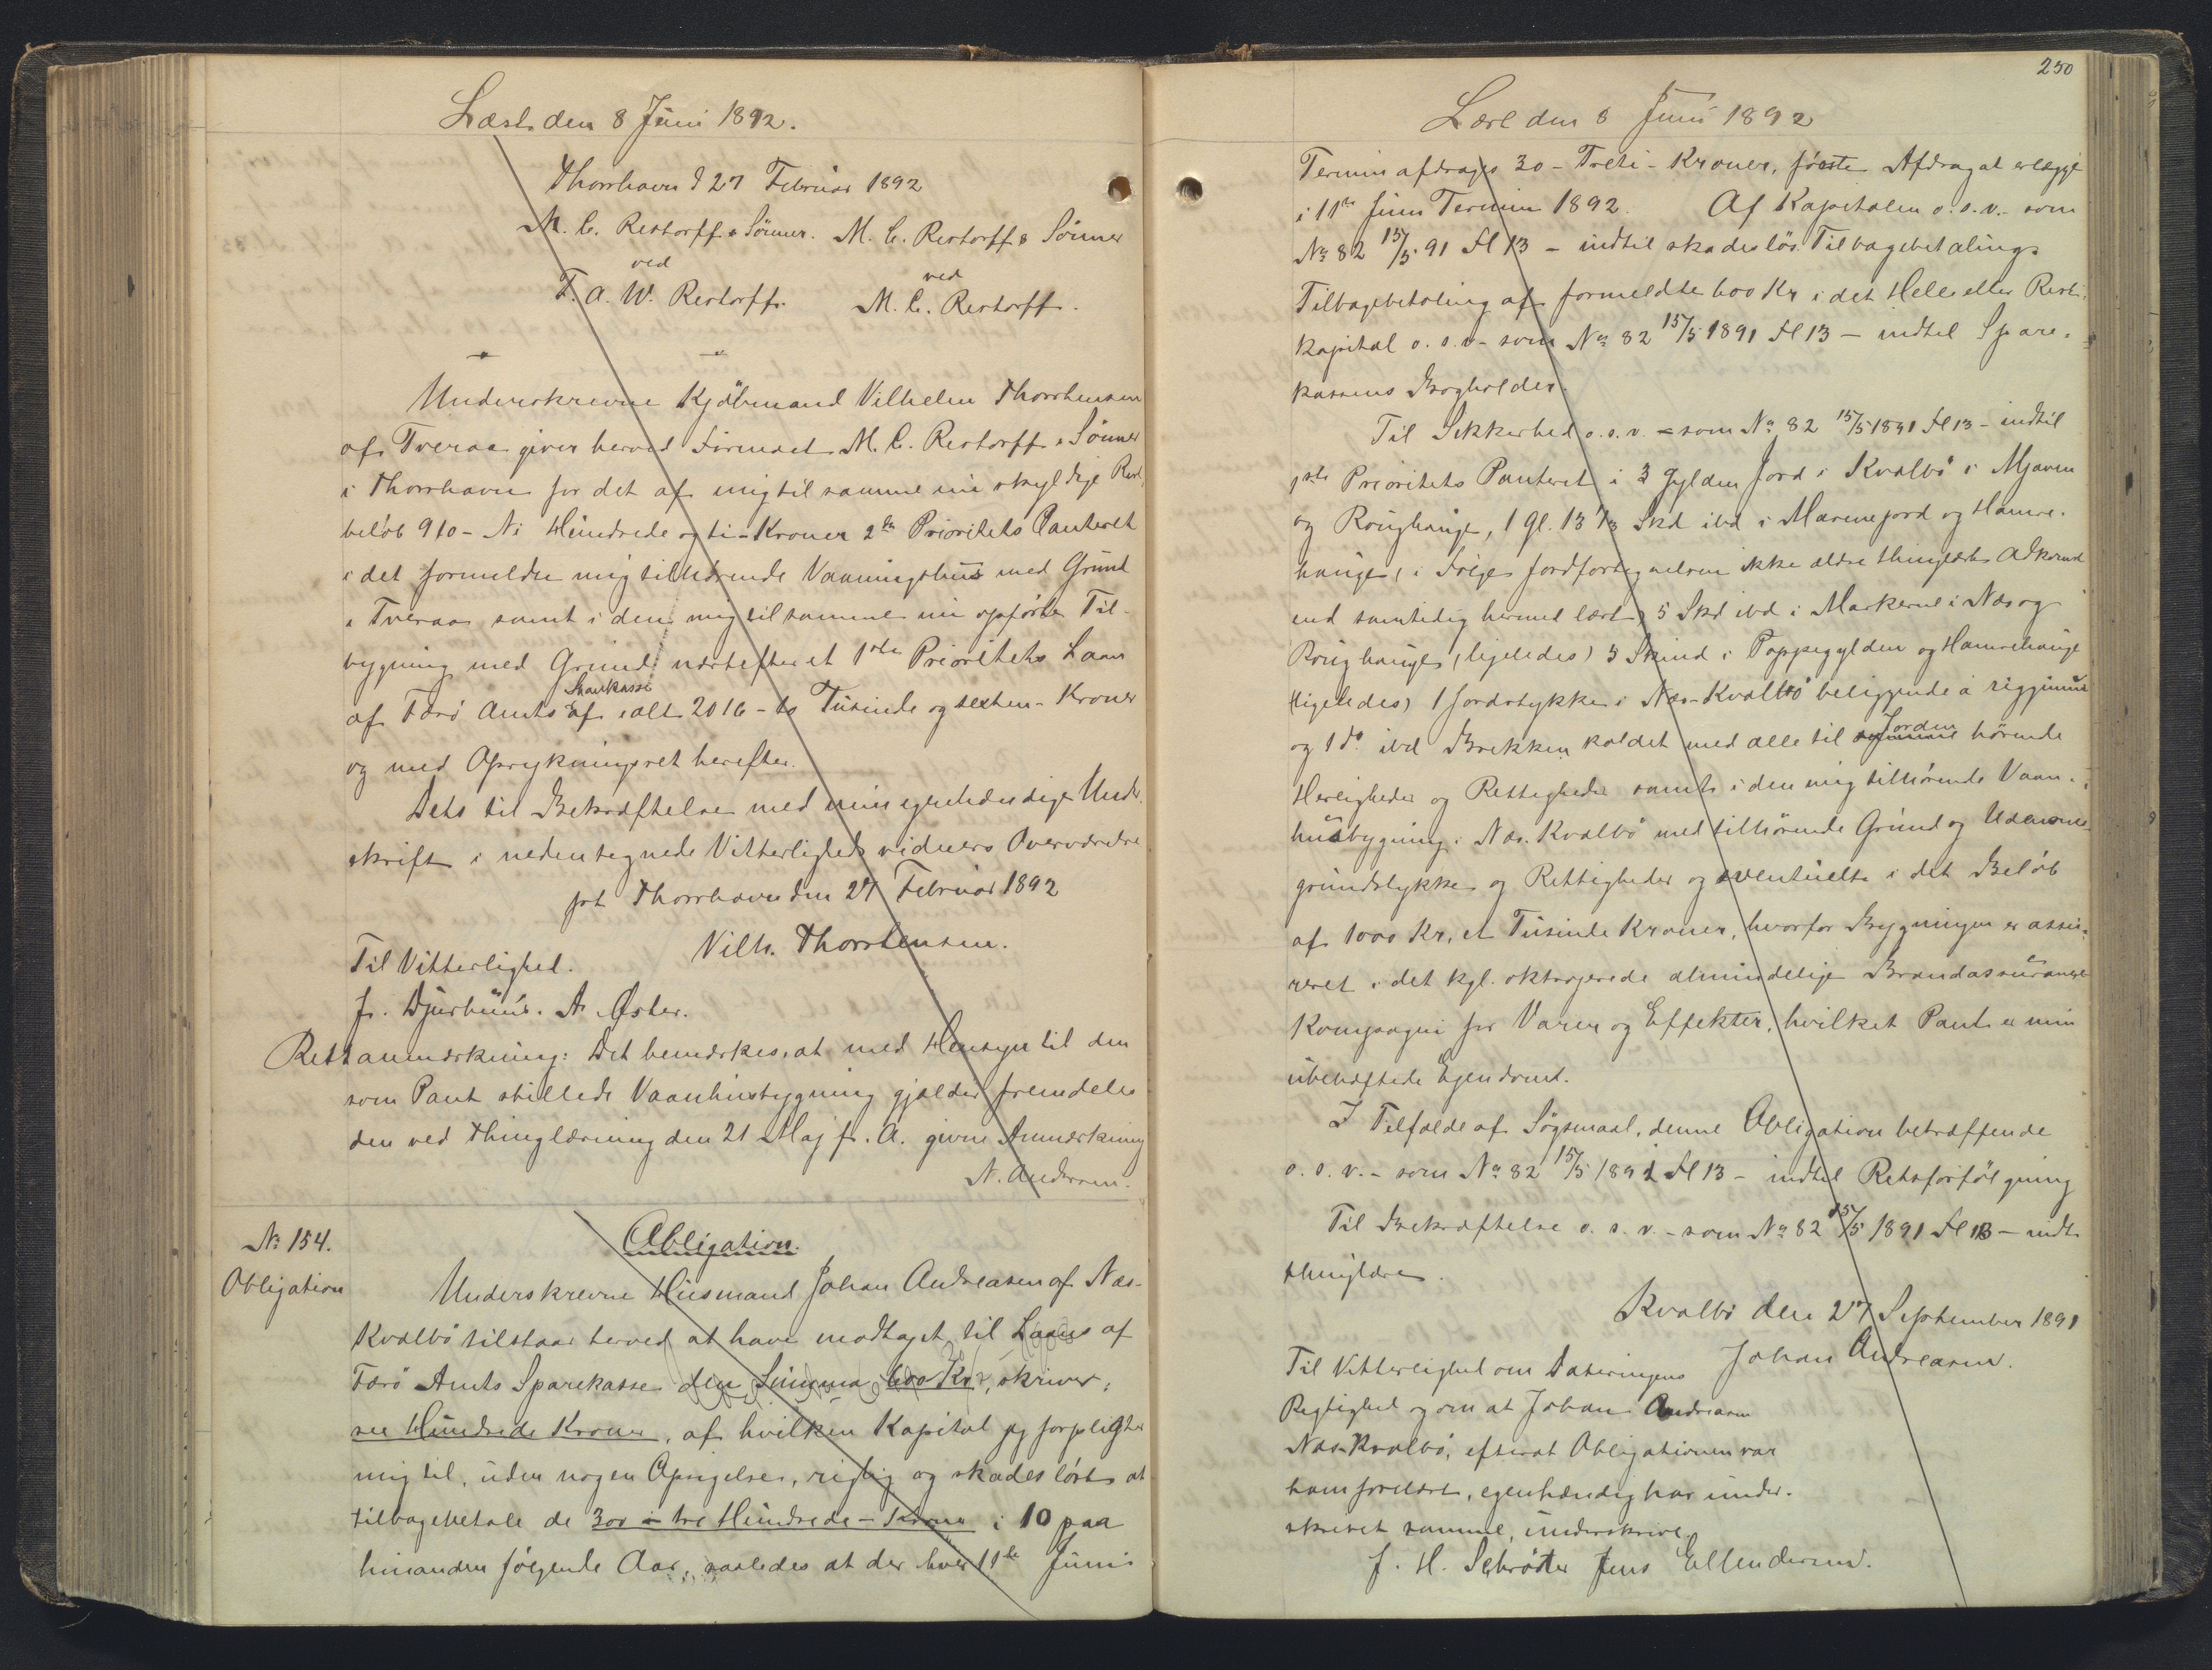 Læst den 8 Juni 1892.
Thorshavn d 27 Februar 1892
M. C. Restorff & Sönner. M. C. Restorff & Sönner
ved ved
F. A. W. Restorff. M. C. Restorff.
Underskrevne Kjöbmand Vilhelm Thorstensen
af Tveraa giver herved Firmaet M. C. Restorff & Sönner
i Thorshavn for det af mig til samme nu skyldige Rest
belöb 910 - Ni Hundrede og ti - Kroner 2den Prioritets Panteret
i det formeldte mig tilhörende Vaaningshus med Grund
i Tveraa samt i den mig til samme nu opförte Til-
bygning med Grund næstefter et 1ste Prioritets Laan
af Færö Amts Sparekasse af ialt 2016 - to Tusinde og sexten - Kroner
og med Oprykningsret herefter.
Dets til Bekræftelse med min egenhændige Under-
skrift i nedentegnede Vitterligheds vidners Overværelse
pt Thorshavn den 27 Februar 1892
Vilh. Thorstensen.
Til Vitterlighed.
J. Djurhuus. A. Öster.
Rettanmærkning: Det bemærkes, at med Hensyn til den
som Pant stillede Vaanhusbygning gjælder fremdeles
den ved Thinglæsning den 21 Maj f. A. givne Anmærkning
N. Andersen.
No 154.
Obligation
Obligation.
Underskrevne Husmand Johan Andreasen af Næs-
Kvalbö tilstaar herved at have modtaget til Laans af
Færö Amts Sparekasse den Summa 600 Kr, skriver:
sex Hundrede Kroner, af hvilken Kapital jeg forpligter
mig til, uden nogen Opsigelse, rigtig og skadeslöst at
tilbagebetale de 300 - tre Hundrede - Kroner i 10 paa
hinanden fölgende Aar, saaledes at der hver 11te Juni
250
Læst den 8 Juni 1892
Termin afdrages 30 - Treti - Kroner, förste Afdrag at erlægge
i 11te Juni Termin 1892. Af Kapitalen o. s. v. som
No 82 15/5 91 Fl 13 - indtil skadeslös Tilbagebetaling.
Tilbagebetaling af formeldte 600 Kr i det Hele eller Rest-
kapital o. s. v. som No 82 15/5 1891 Fl 13 - indtil Spare-
kassens Bogholder.
Til Sikkerhed o. s. v. - som No 82 15/5 1891 Fl 13 - indtil
1ste Prioritets Panteret i 3 Gylden Jord i Kvalbö i Mjaven
og Roughauge, 1 Gl. 13 1/3 Skd ibd i Marenejord og Hamre-
hauge, (i Fölge Jordfortegnelsen ikke ældre thinglæst Adkomst
end samtidig hermed læst) 5 Skd ibd i Markerne i Næs og
Roughauge (ligeledes) 3 Skind i Poppegylden og Hamrehauge
(ligeledes) 1 Jordstykke i Næs-Kvalbö beliggende á riggjunum
og 1 do ibd Brekken kaldet med alle til Jorden hörende
Herligheder og Rettigheder samt i den mig tilhörende Vaan-
husbygning i Næs-Kvalbö med tilhörende Grund og Udenoms-
grundstykke og Rettigheder og eventuelt i det Belöb
af 1000 Kr, et Tusinde Kroner, hvorfor Bygningen er assu-
reret i det kgl. oktrojerede almindelige Brandassurance
Kompagni for Varer og Effekter, hvilket Pant er min
ubehæftede Ejendom.
I Tilfælde af Sögsmaal, denne Obligation betræffende
o. s. v. - som No 82 15/5 1891 Fl 13 - indtil Retsforfölgning
Til Bekræftelse o. s. v. - som No 82 15/5 1891 Fl 13 - indt.
thinglæses.
Kvalbö den 27 September 1891
Johan Andreasen.
Til Vitterlighed om Dateringens
Rigtighed og om at Johan Andreasen
Næs-Kvalbö, efterat Obligationen var
ham forelæst, egenhændig har under-
skrevet samme, underskrive
J. H. Schröter Jens Ellendersen.